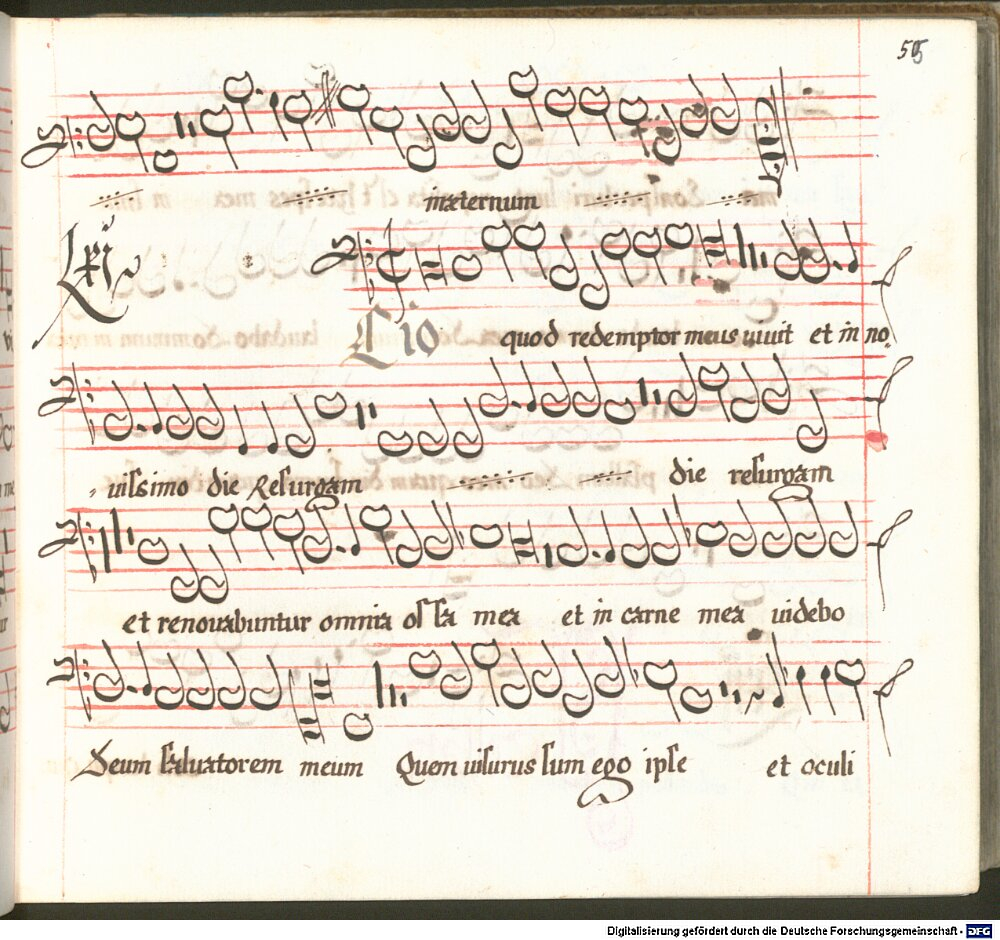 55
in æternum
Lxij
Cio quod redemptor meus uiuit et in no,
uissimo die Resurgam die resurgam
et renouabuntur omnia ossa mea et in carne mea uidebo
Deum saluatorem meum Quem uisurus sum ego ipse et oculi
Digitalisierung gefördert durch die Deutsche Forschungsgemeinschaft - DFG